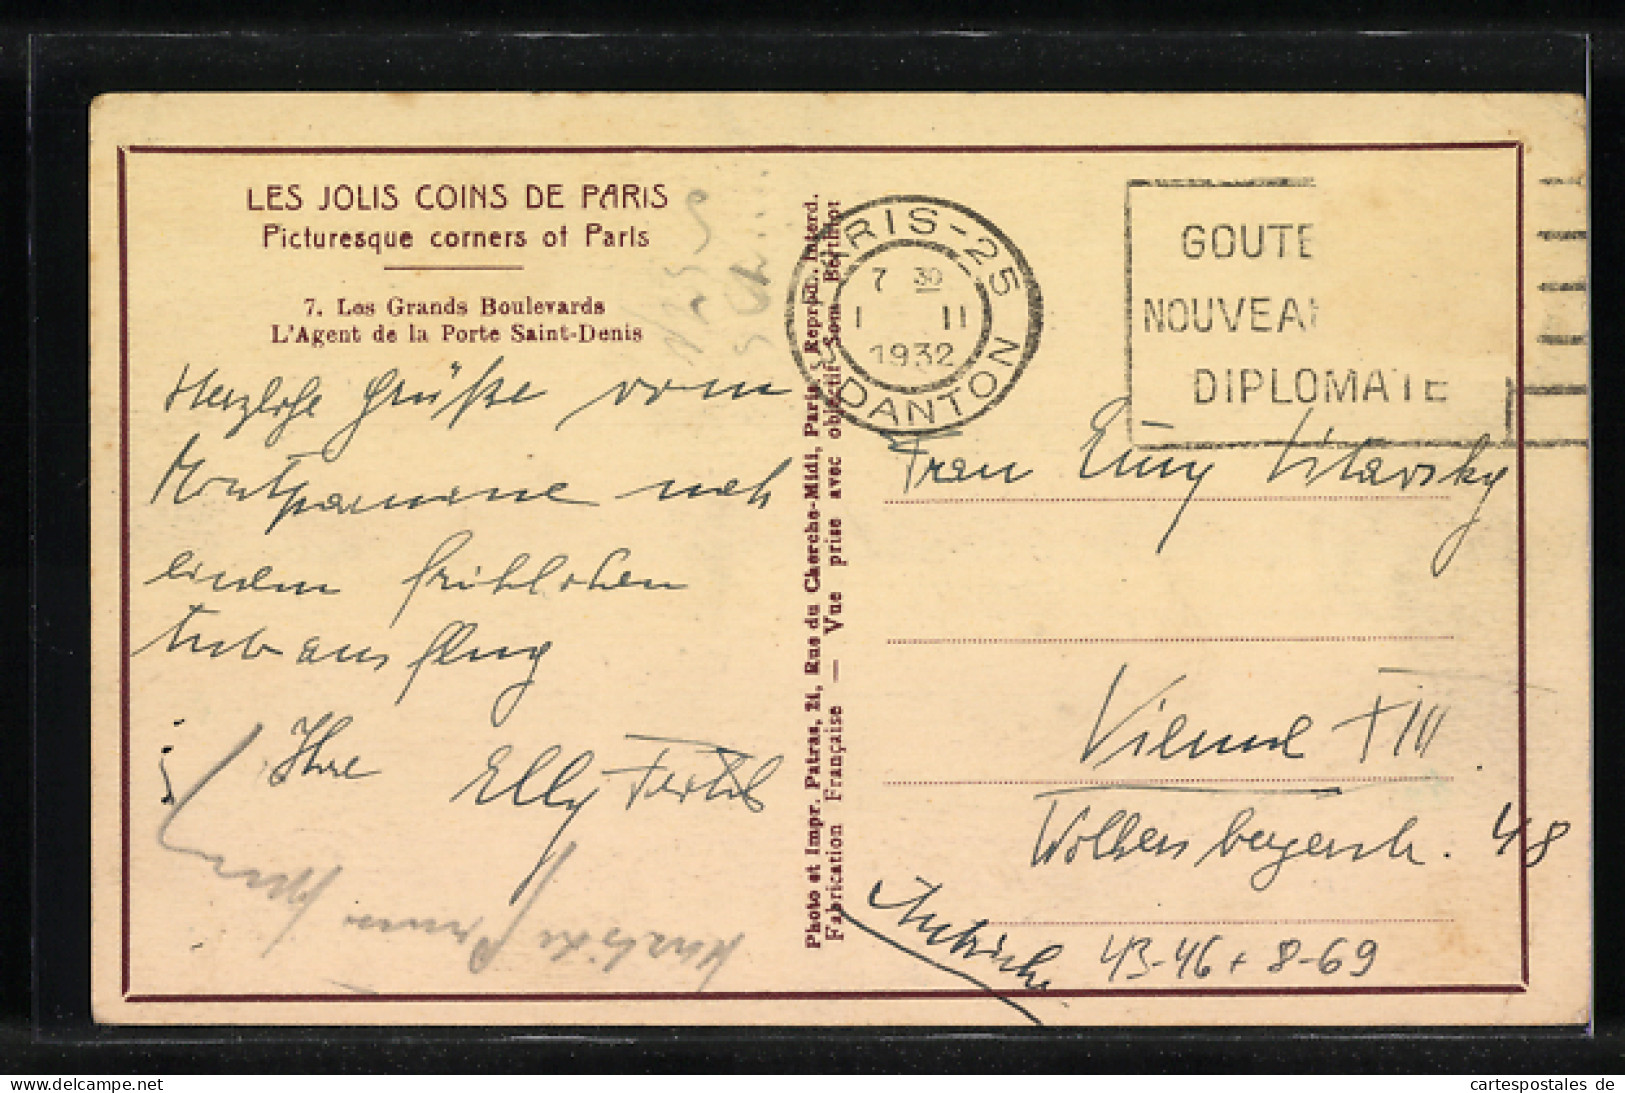 LES JOLIS COINS DE PARIS
Picturesque corners of Paris
7. Les Grands Boulevards
L'Agent de la Porte Saint-Denis
Herzliche Grüße vom
Montparnasse nach
einem fröhlichen
ausflug
Ihre Elly
Photo et Impr. Patras, 21, Rue du Cherche-Midi, Paris. Reprod. Interd.
Fabrication Française — Vue prise avec objectif Som Berthiot
PARIS-25
7 30
1 II
1932
DANTON
GOUTE
NOUVEA
DIPLOMATE
Frau Emy Litavsky
Vienne XIII
Wolkersbergerstr. 48
Autriche
43-46 + 8-69
oldthing.de
cartespostales de